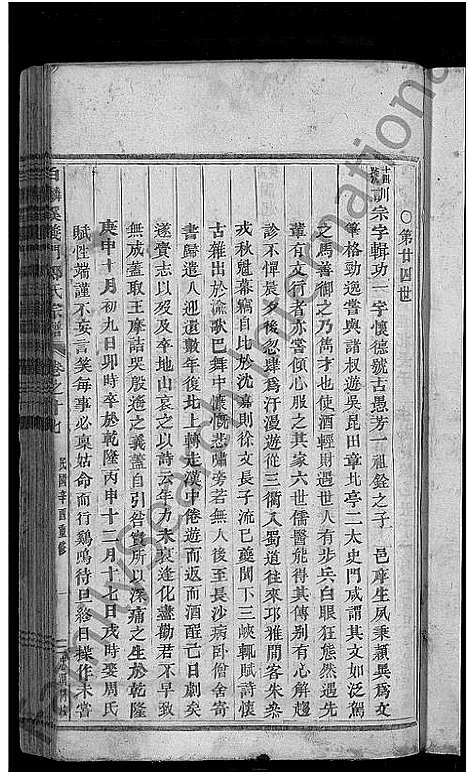 ○第廿四世
訓宗字輯功一字懷德號古愚芳一祖銓之子 邑庠生夙秉穎異爲文
筆格勁逸嘗與諸叔遊吳昆田章比亭二太史門咸謂其文如泛駕
之馬善御之乃雋才也使酒輕財遇世人有步兵白眼狂態然遇先
輩有文行者亦嘗傾心服之其家六世儒醫能得其傳別有心解趨
診不憚晨夕後忽肆爲汗漫遊從三衢入蜀道往來邛雅閒客朱染
戎秋魁幕竊自比於沈嘉則徐文長子流巴夔閬下三峽輒賦詩懷
古雜出於渝歌巴舞中慷慨悲嘯旁若無人後至長沙病卧僧舍寄
書歸遣人迎還數年後北上轉走漢中倦遊而返而酒酲己日劇矣
遂賫志以歿及卒地山哀之以詩云年力未衰逢化盡勸君不早致
無成蓋取王摩詰哭殷遙之義蓋自引咎實所以深痛之生於乾隆
庚申十月初九日卯時卒於乾隆丙申十二月十七日戌時娶周氏
賦性端謹不妄言笑每事必稟姑命而行鷄鳴待旦終日操作未嘗
白麟溪義門鄭氏宗譜 卷之十七 民國辛酉重修 一